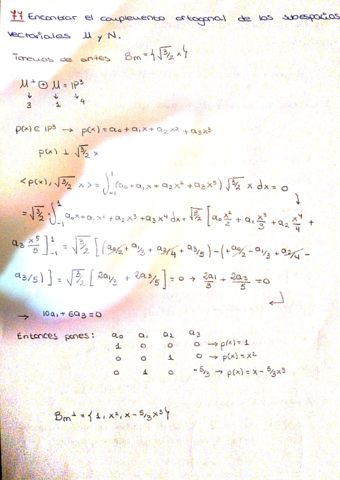 71 Encontrar el complemento ortogonal de los subespacios
vectoriales M y N.
Tenemos de antes Bm = {√3/2 x}
M⊥ ⊕ M = IP³
↓ ↓ ↓
3 1 4
p(x) ∈ IP³ → p(x) = a0 + a1x + a2x² + a3x³
p(x) ⊥ √3/2 x
<p(x), √3/2 x> = ∫₋₁¹ (a0 + a1x + a2x² + a3x³) √3/2 x dx = 0
= √3/2 · ∫₋₁¹ a0x + a1x² + a2x³ + a3x⁴ dx = √3/2 [a0 x²/2 + a1 x³/3 + a2 x⁴/4 +
a3 x⁵/5]₋₁¹ = √3/2 [(a0/2 + a1/3 + a2/4 + a3/5) - (+a0/2 - a1/3 + a2/4 -
a3/5)] = √3/2 [2a1/3 + 2a3/5] = 0 → 2a1/3 + 2a3/5 = 0
→ 10a1 + 6a3 = 0
Entonces pones: a0 a1 a2 a3
1 0 0 0 → p(x) = 1
0 0 1 0 → p(x) = x²
0 1 0 -5/3 → p(x) = x - 5/3x³
Bm⊥ = {1, x², x - 5/3 x³}